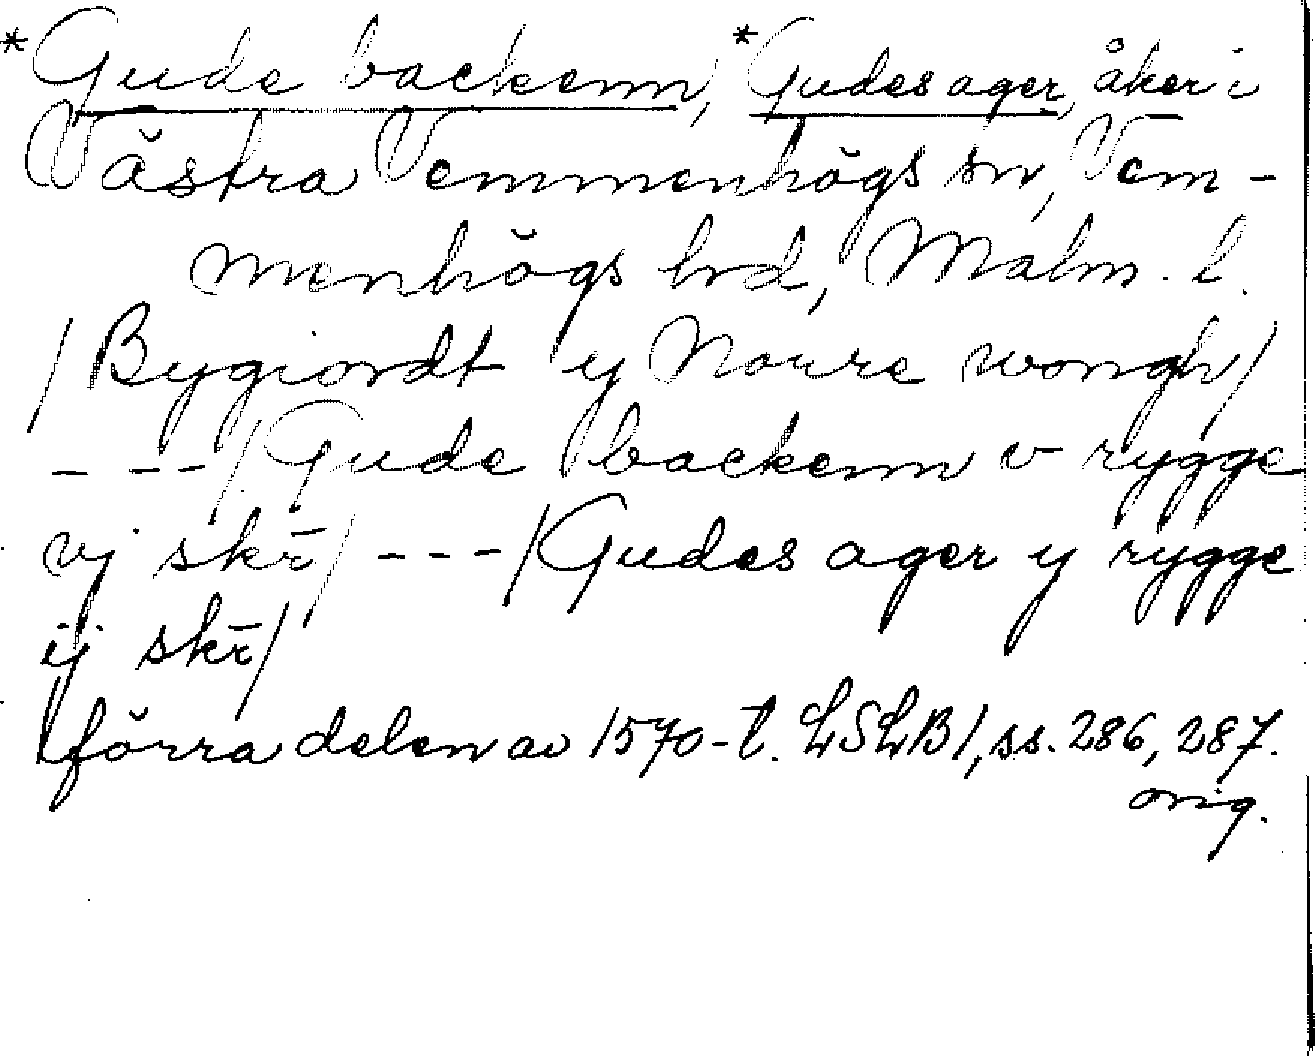 *Gude backenn, *Gudes ager, åker i
Västra Vemmenhögs sn, Vem-
menhögs hrd, Malm. l.
/Bygiordt y Noure wongh/
- - - /Gude backenn v rygge
vj skr̄/ - - - /Gudes ager y rygge
ij skr̄/
förra delen av 1570-t. LSLB1, ss. 286, 287.
orig.